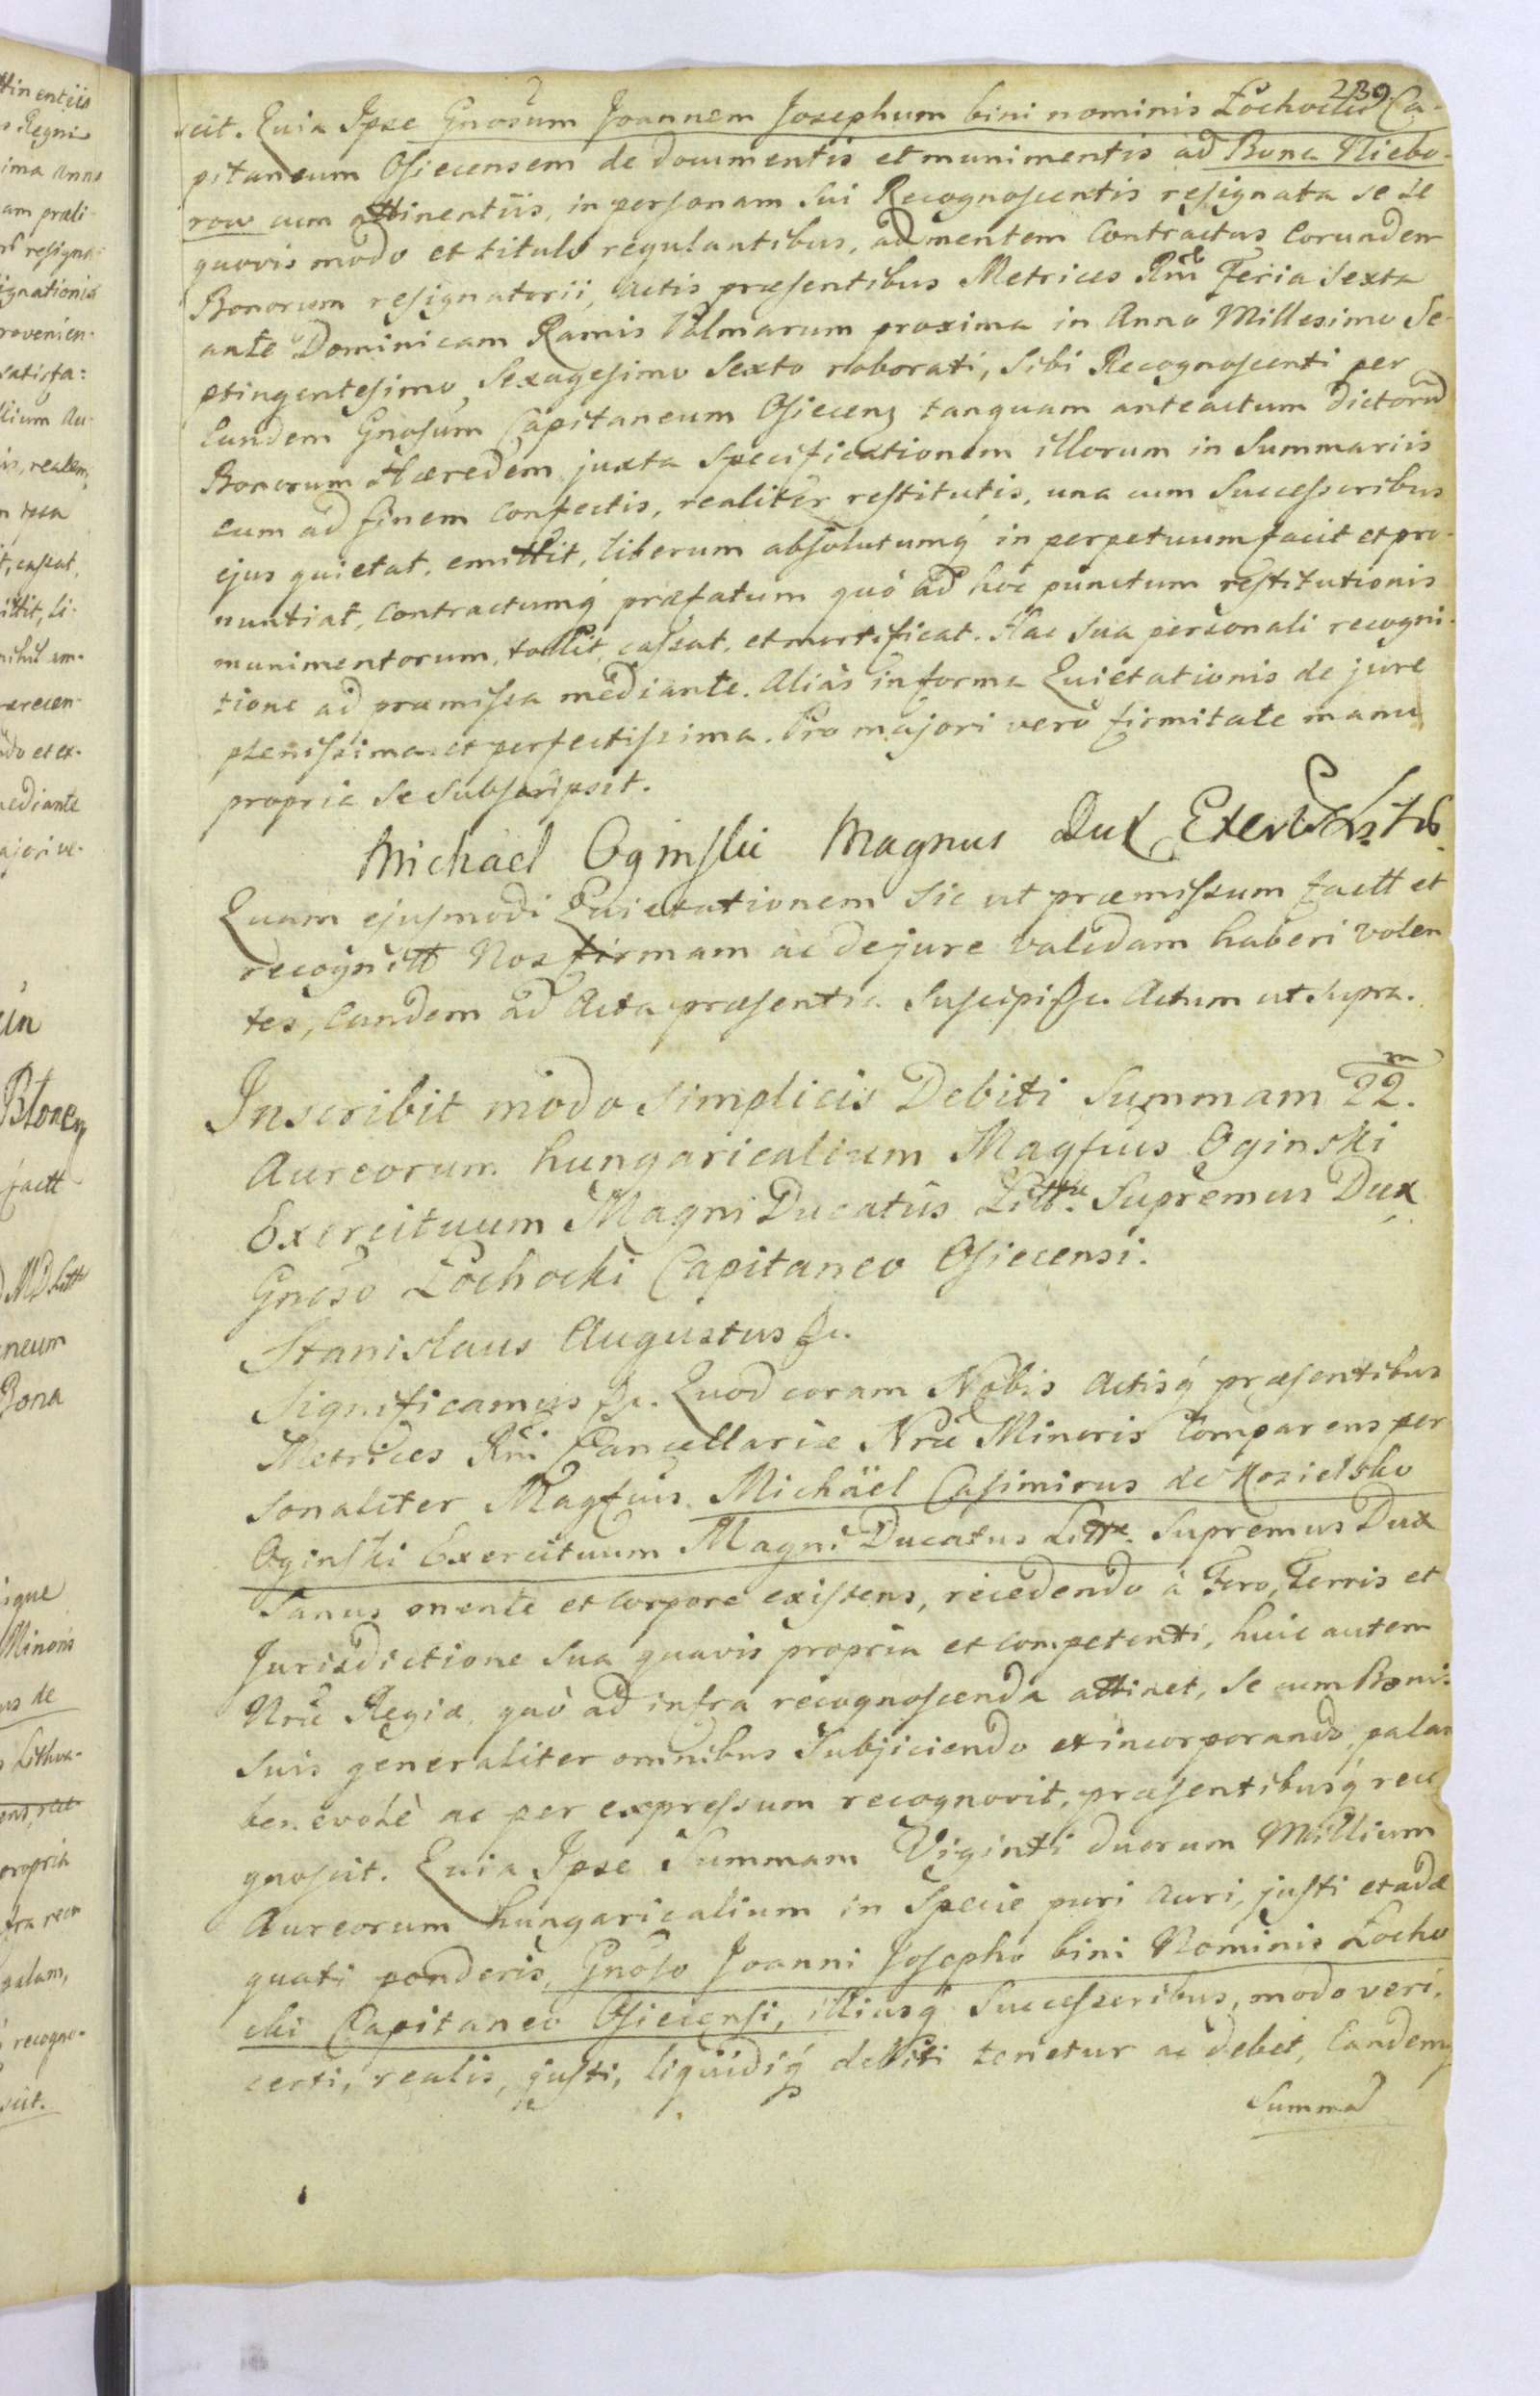 239.
scit. Quia Ipse Gnosum Joannem Josephum bini nominis Łochocki Ca-
pitaneum Osiecensem de documentis et munimentis ad Bona Niebo-
row cum attinentiis, in personam sui Recognoscentis resignata se se
quovis modo et titulo regulantibus, ad mentem Contractus Eorundem
Bonorum resignatorii, Actis præsentibus Metrices Rni Feria Sexta
ante Dominicam Ramis Palmarum proxima in Anno Millesimo Se-
ptingentesimo Sexagesimo Sexto roborati, Sibi Recognoscenti per
Eundem Gnosum Capitaneum Osiecens tanquam anteactum dictorum
Bonorum Hæredem, juxta Specificationem illorum in Summariis
eum ad finem Confectis, realiter restitutis, una cum Successoribus
ejus quietat, emittit, liberum absolutumq́ in perpetuum facit et pro-
nuntiat, Contractumq́ præfatum quò ad hoc punctum restitutionis
munimentorum, tollit, cassat, et mortificat. Hac Sua personali recogni-
tione ad præmissa mediante. Aliàs in forma Quietationis de jure
plenissima et perfectissima. Pro majori verò firmitate manu
propria Se Subscripsit.
Michael Oginskii Magnus Dux
Quam ejusmodi Quietationem Sic ut præmissum factt et
recognitt Nos firmam ac de jure validam haberi volen
tes, Eandem ad Acta præsentia Suscipi &c. Actum ut supra.
Inscribit modo Simplicis Debiti Summam 22. m
Aureorum hungaricalium Magfcus Oginski
Exercituum Magni Ducatûs Litt. Supremus Dux
Gnoso Łochocki Capitaneo Osiecensi.
Stanislaus Augustus &c.
Significamus &c. Quod coram Nobis Actisq́ præsentibus
Metrices Rni Cancellariæ Nræ Minoris Comparens per
sonaliter Magfcus Michäel Casimirus de Kozielsko
Oginski Exercituum Magni Ducatus Litt. Supremus Dux
Sanus mente et Corpore existens, recedendo à Foro, Terris et
Jurisdictione Sua quavis propria et Competenti, huic autem
Nræ Regiæ, quò ad infra recognoscenda attinet, Se cum Bonis
Suis generaliter omnibus Subjiciendo et incorporando, palam
benevolè ac per expressum recognovit, præsentibusq́ reco
gnoscit. Quia Ipse Summam Viginti duorum Millium
Aureorum hungaricalium in Specie puri Auri, justi et adæ
quati ponderis, Gnoso Joanni Josepho bini Nominis Łocho
cki Capitaneo Osiecensi, illiusq́ Successoribus, modo veri,
certi, realis, justi, liquidiq́ debiti tenetur ac debet, Eandemq
Summam